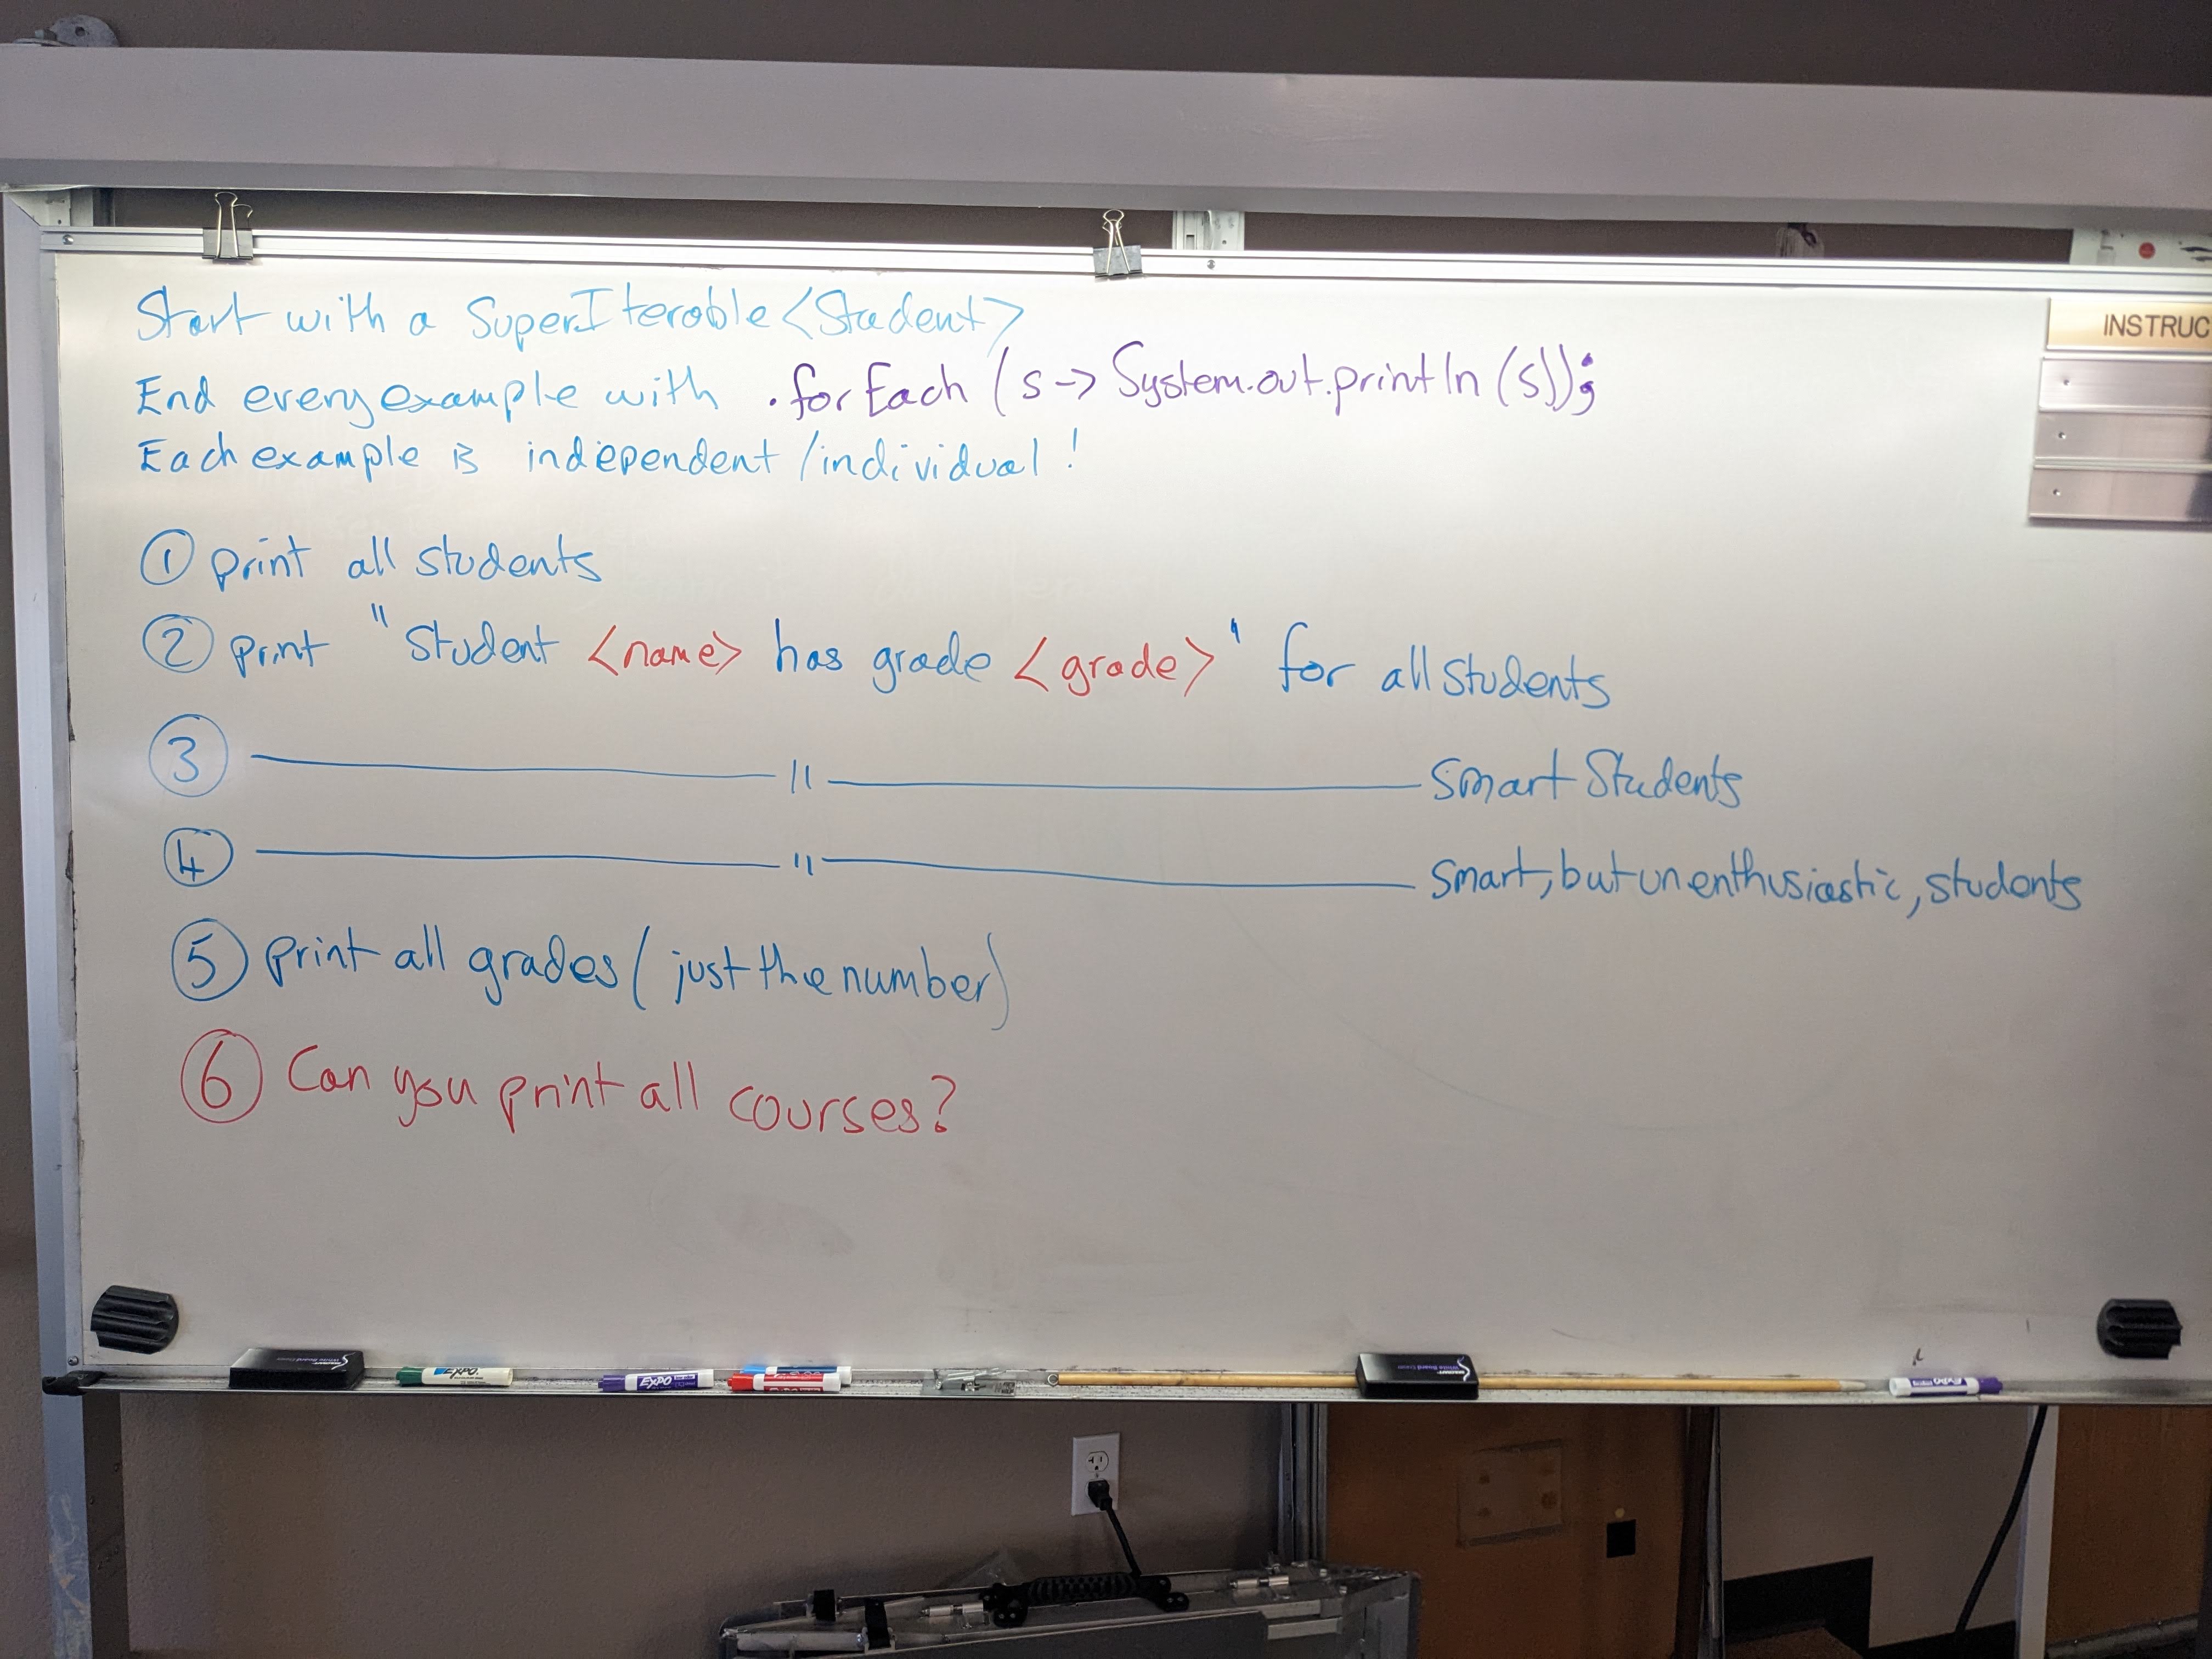 Start with a SuperIterable<Student>
End every example with .forEach (s -> System.out.println(s));
Each example is independent/individual!
① print all students
② print "Student <name> has grade <grade>" for all students
③ —— " —— Smart Students
④ —— " —— Smart, but unenthusiastic, students
⑤ print all grades (just the number)
⑥ Can you print all courses?
INSTRUC
EXPO
EXPO
EXPO